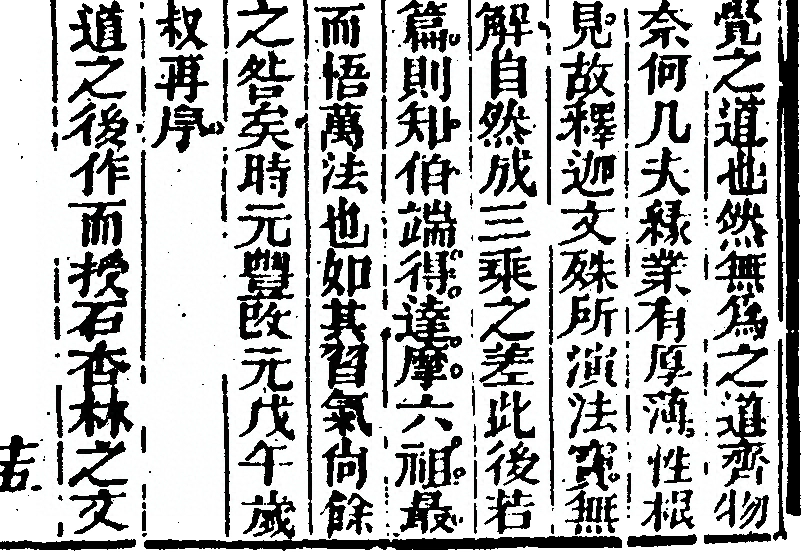 覺之道也然無爲之道齊物
奈何凡夫緣業有厚薄性根
見故釋迦文殊所演法寶無
解自然成三乘之差此後若
篇則知伯端得達摩六祖最
而悟萬法也如其習氣尙餘
之咎矣時元豐改元戊午歲
叔再序
道之後作而授石杏林之文